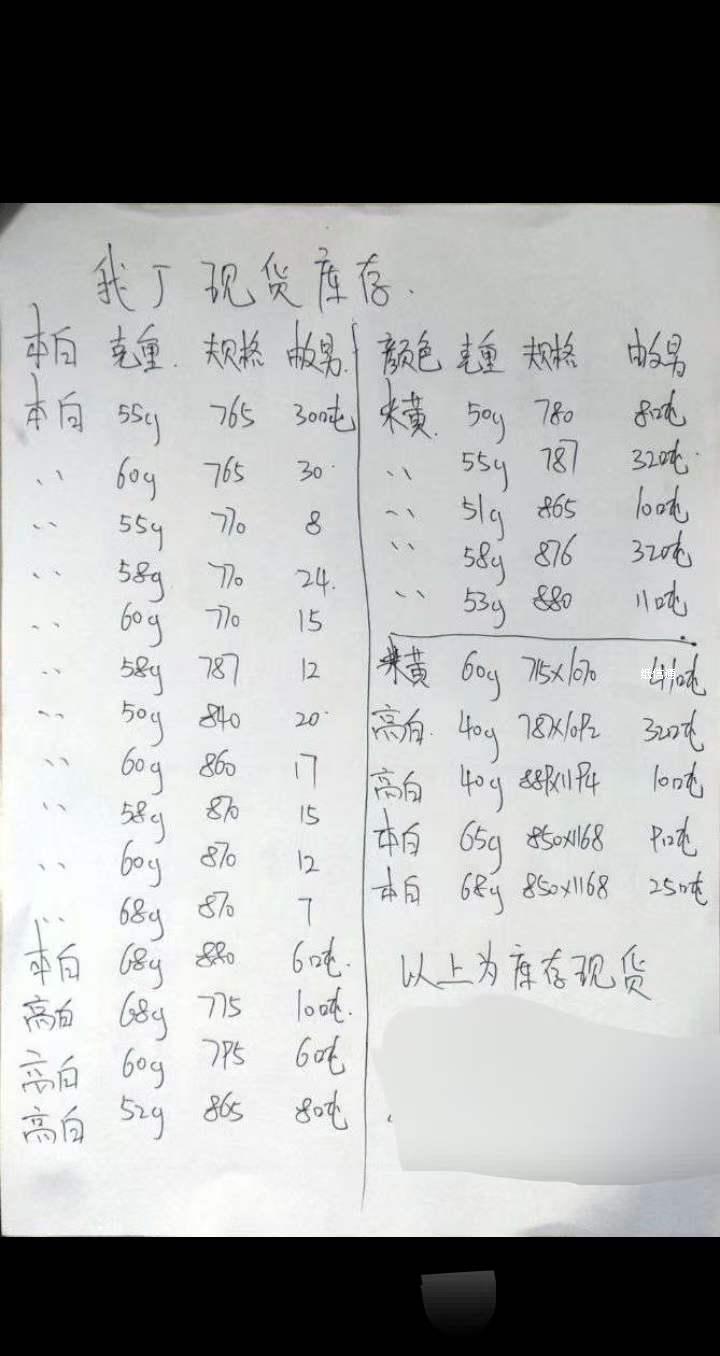 我厂现货库存.
本白 克重. 规格 数量.
本白 55g 765 30吨
〃 60g 765 30
〃 55g 770 8
〃 58g 770 24.
〃 60g 770 15
〃 58g 787 12
〃 50g 840 20
〃 60g 860 17
〃 58g 870 15
〃 60g 870 12
〃 68g 870 7
本白 68g 880 6吨.
高白 68g 775 10吨.
高白 60g 795 6吨
高白 52g 865 8吨
颜色 克重 规格 数量
米黄 50g 780 8吨
〃 55g 787 32吨
〃 51g 865 10吨
〃 58g 876 32吨
〃 53g 880 11吨
米黄 60g 715×1070
高白. 40g 787×1092 32吨
高白 40g 889×1194 10吨
本白 65g 850×1168 9吨
本白 68g 850×1168 25吨
以上为库存现货